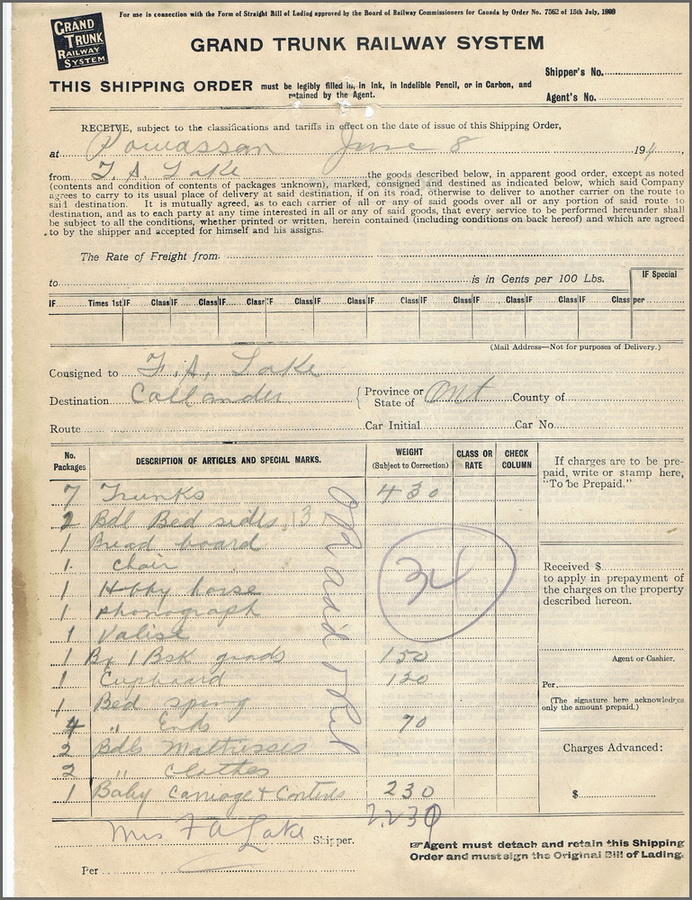 For use in connection with the Form of Straight Bill of Lading approved by the Board of Railway Commissioners for Canada by Order No. 7562 of 15th July, 1909
GRAND
TRUNK
RAILWAY
SYSTEM
GRAND TRUNK RAILWAY SYSTEM
Shipper's No.
THIS SHIPPING ORDER must be legibly filled in, in Ink, in Indelible Pencil, or in Carbon, and
retained by the Agent.
Agent's No.
RECEIVE, subject to the classifications and tariffs in effect on the date of issue of this Shipping Order,
at Powassan June 8 191
from F. A. Lake the goods described below, in apparent good order, except as noted
(contents and condition of contents of packages unknown), marked, consigned and destined as indicated below, which said Company
agrees to carry to its usual place of delivery at said destination, if on its road, otherwise to deliver to another carrier on the route to
said destination. It is mutually agreed, as to each carrier of all or any of said goods over all or any portion of said route to
destination, and as to each party at any time interested in all or any of said goods, that every service to be performed hereunder shall
be subject to all the conditions, whether printed or written, herein contained (including conditions on back hereof) and which are agreed
to by the shipper and accepted for himself and his assigns.
The Rate of Freight from
to is in Cents per 100 Lbs.
IF Special
IF Times 1st IF Class IF Class IF Class IF Class IF Class IF Class IF Class IF Class per
(Mail Address—Not for purposes of Delivery.)
Consigned to F. A. Lake
Destination Callander { Province or State of Ont County of
Route Car Initial Car No.
No. Packages DESCRIPTION OF ARTICLES AND SPECIAL MARKS. WEIGHT (Subject to Correction) CLASS OR RATE CHECK COLUMN
If charges are to be pre-
paid, write or stamp here,
"To be Prepaid."
7 Trunks 430
2 Bdl Bed sides 13
1 Bread board
1 Chair
1 Hobby horse
1 Phonograph
1 Valise
1 Bx 1 Bsk goods 150
1 Cupboard 120
1 Bed spring
4 " Ends 70
2 Bdls Mattresses
2 " Clothes
1 Baby Carriage + Contents 230
34
Received $
to apply in prepayment of
the charges on the property
described hereon.
Agent or Cashier.
Per
(The signature here acknowledges
only the amount prepaid.)
Charges Advanced:
$
Mrs F A Lake Shipper.
Per
Agent must detach and retain this Shipping
Order and must sign the Original Bill of Lading.